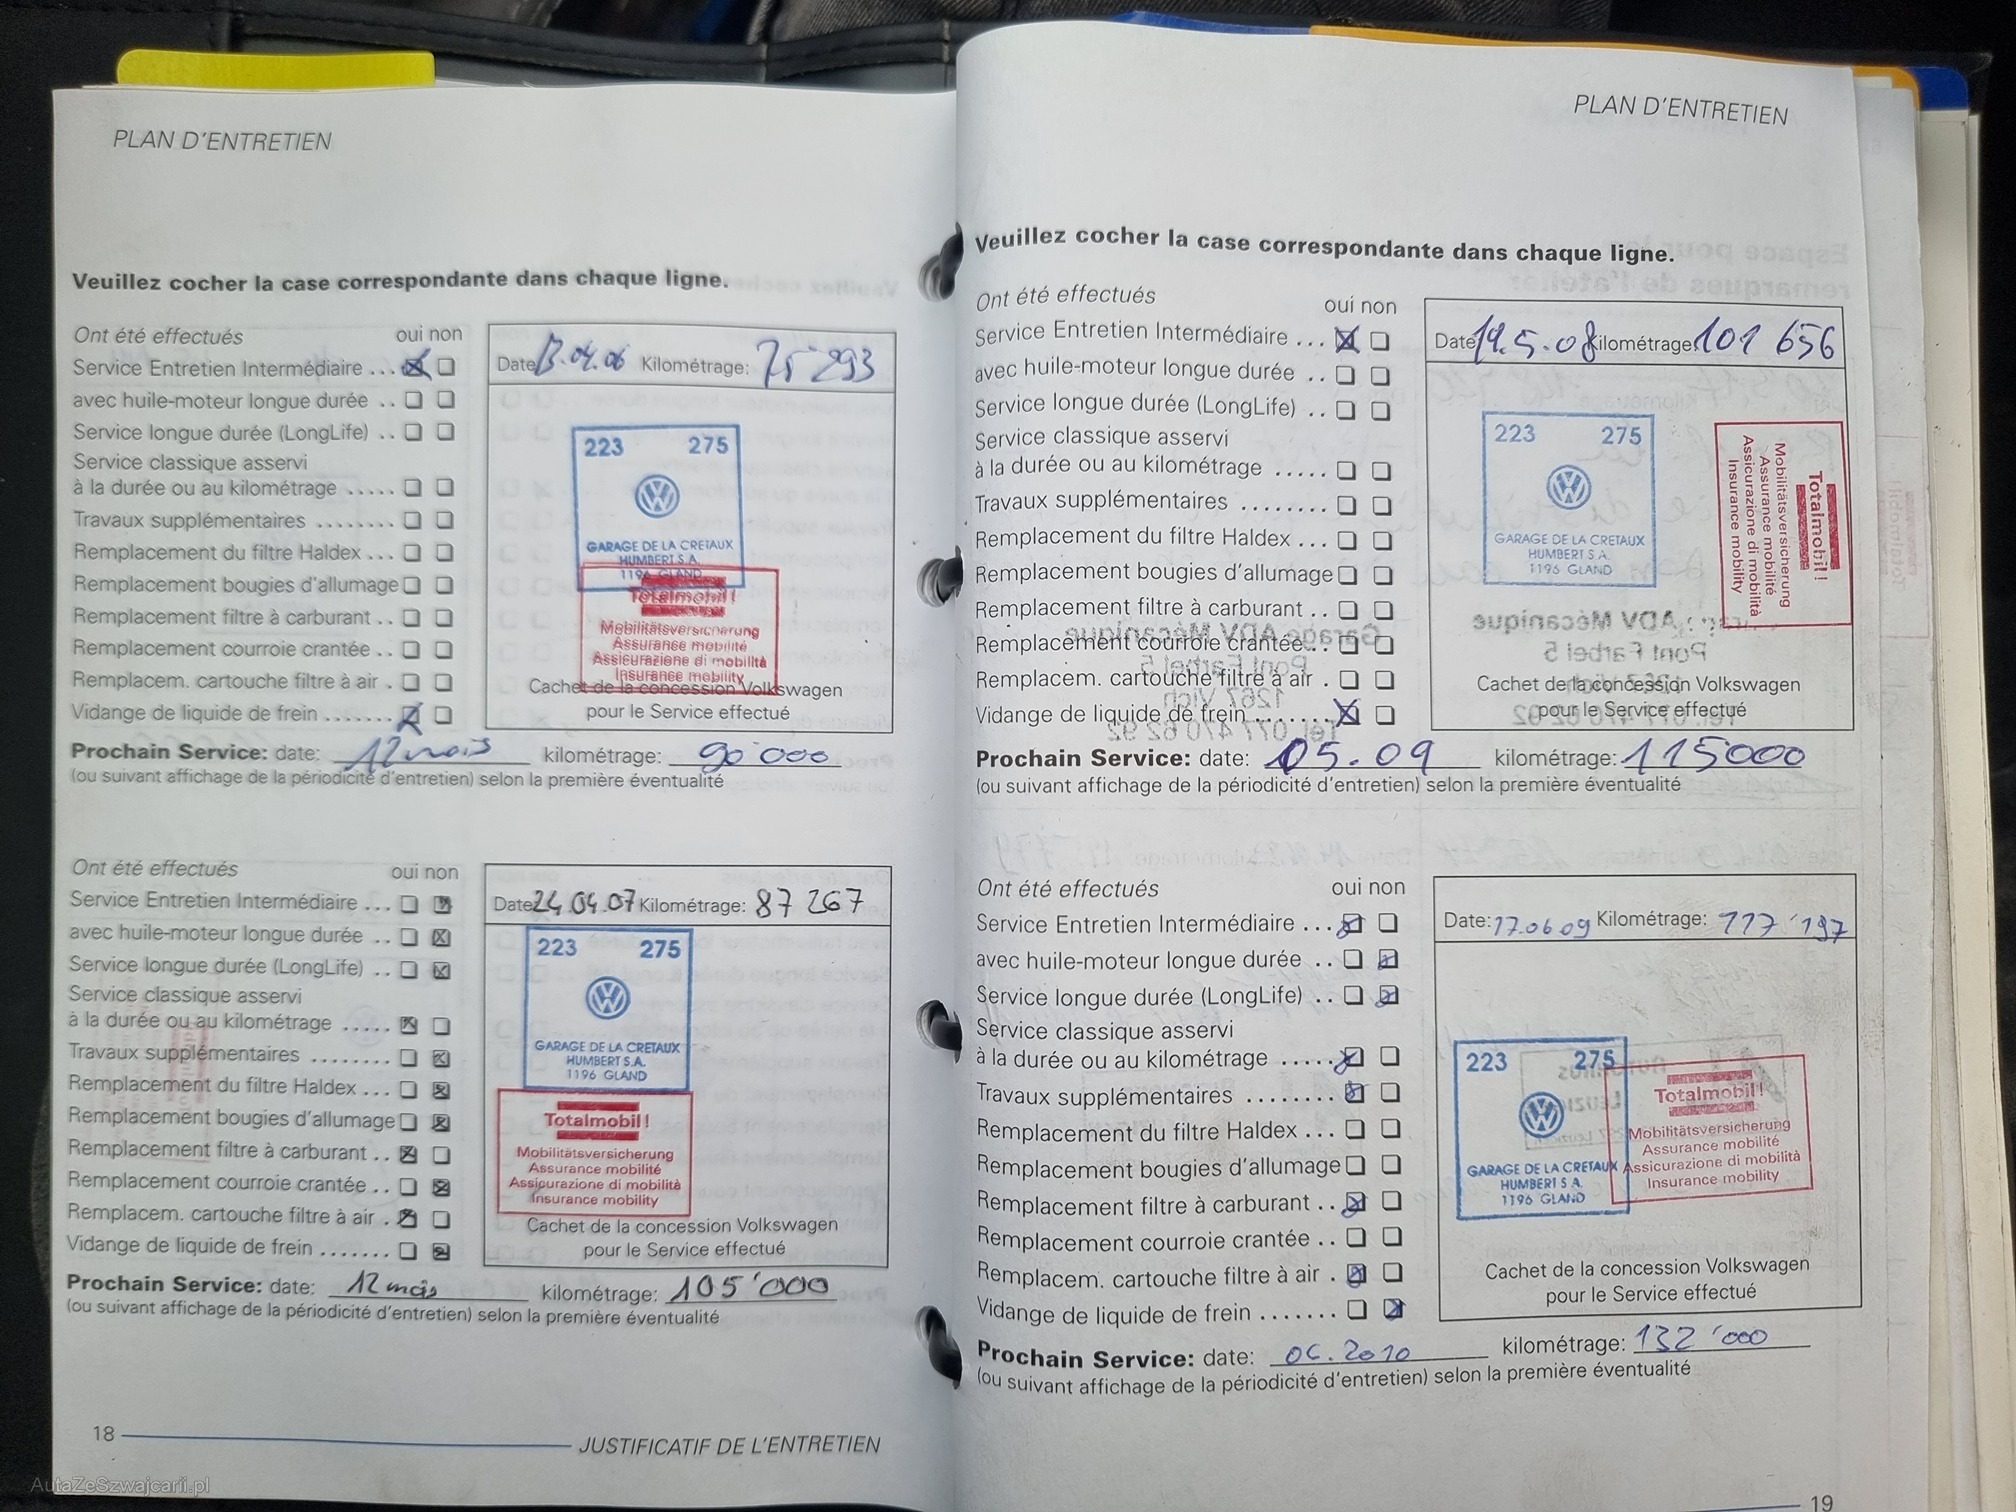 PLAN D'ENTRETIEN
Veuillez cocher la case correspondante dans chaque ligne.
Ont été effectués oui non
Service Entretien Intermédiaire ...
avec huile-moteur longue durée ..
Service longue durée (LongLife) ..
Service classique asservi
à la durée ou au kilométrage .....
Travaux supplémentaires ........
Remplacement du filtre Haldex ...
Remplacement bougies d'allumage
Remplacement filtre à carburant ..
Remplacement courroie crantée ..
Remplacem. cartouche filtre à air .
Vidange de liquide de frein .......
Date 13.04.06 Kilométrage: 75'293
223 275
GARAGE DE LA CRETAUX
HUMBERT S.A.
1196 GLAND
Totalmobil!
Mobilitätsversicherung
Assurance mobilité
Assicurazione di mobilità
Insurance mobility
Cachet de la concession Volkswagen
pour le Service effectué
Prochain Service: date: 12 mois kilométrage: 90'000
(ou suivant affichage de la périodicité d'entretien) selon la première éventualité
Ont été effectués oui non
Service Entretien Intermédiaire ...
avec huile-moteur longue durée ..
Service longue durée (LongLife) ..
Service classique asservi
à la durée ou au kilométrage .....
Travaux supplémentaires ........
Remplacement du filtre Haldex ...
Remplacement bougies d'allumage
Remplacement filtre à carburant ..
Remplacement courroie crantée ..
Remplacem. cartouche filtre à air .
Vidange de liquide de frein .......
Date 24.04.07 Kilométrage: 87 267
223 275
GARAGE DE LA CRETAUX
HUMBERT S.A.
1196 GLAND
Totalmobil!
Mobilitätsversicherung
Assurance mobilité
Assicurazione di mobilità
Insurance mobility
Cachet de la concession Volkswagen
pour le Service effectué
Prochain Service: date: 12 mois kilométrage: 105'000
(ou suivant affichage de la périodicité d'entretien) selon la première éventualité
18 JUSTIFICATIF DE L'ENTRETIEN
AutaZeSzwajcarii.pl
PLAN D'ENTRETIEN
Veuillez cocher la case correspondante dans chaque ligne.
Ont été effectués oui non
Service Entretien Intermédiaire ...
avec huile-moteur longue durée ..
Service longue durée (LongLife) ..
Service classique asservi
à la durée ou au kilométrage .....
Travaux supplémentaires ........
Remplacement du filtre Haldex ...
Remplacement bougies d'allumage
Remplacement filtre à carburant ..
Remplacement courroie crantée ..
Remplacem. cartouche filtre à air .
Vidange de liquide de frein ........
Date 19.5.08 Kilométrage: 101 656
223 275
GARAGE DE LA CRETAUX
HUMBERT S.A.
1196 GLAND
Totalmobil!
Mobilitätsversicherung
Assurance mobilité
Assicurazione di mobilità
Insurance mobility
Cachet de la concession Volkswagen
pour le Service effectué
Prochain Service: date: 05.09 kilométrage: 115000
(ou suivant affichage de la périodicité d'entretien) selon la première éventualité
Ont été effectués oui non
Service Entretien Intermédiaire ...
avec huile-moteur longue durée ..
Service longue durée (LongLife) ..
Service classique asservi
à la durée ou au kilométrage .....
Travaux supplémentaires ........
Remplacement du filtre Haldex ...
Remplacement bougies d'allumage
Remplacement filtre à carburant ..
Remplacement courroie crantée ..
Remplacem. cartouche filtre à air .
Vidange de liquide de frein .......
Date: 17.06.09 Kilométrage: 117'197
223 275
GARAGE DE LA CRETAUX
HUMBERT S.A.
1196 GLAND
Totalmobil!
Mobilitätsversicherung
Assurance mobilité
Assicurazione di mobilità
Insurance mobility
Cachet de la concession Volkswagen
pour le Service effectué
Prochain Service: date: 06.2010 kilométrage: 132'000
(ou suivant affichage de la périodicité d'entretien) selon la première éventualité
19